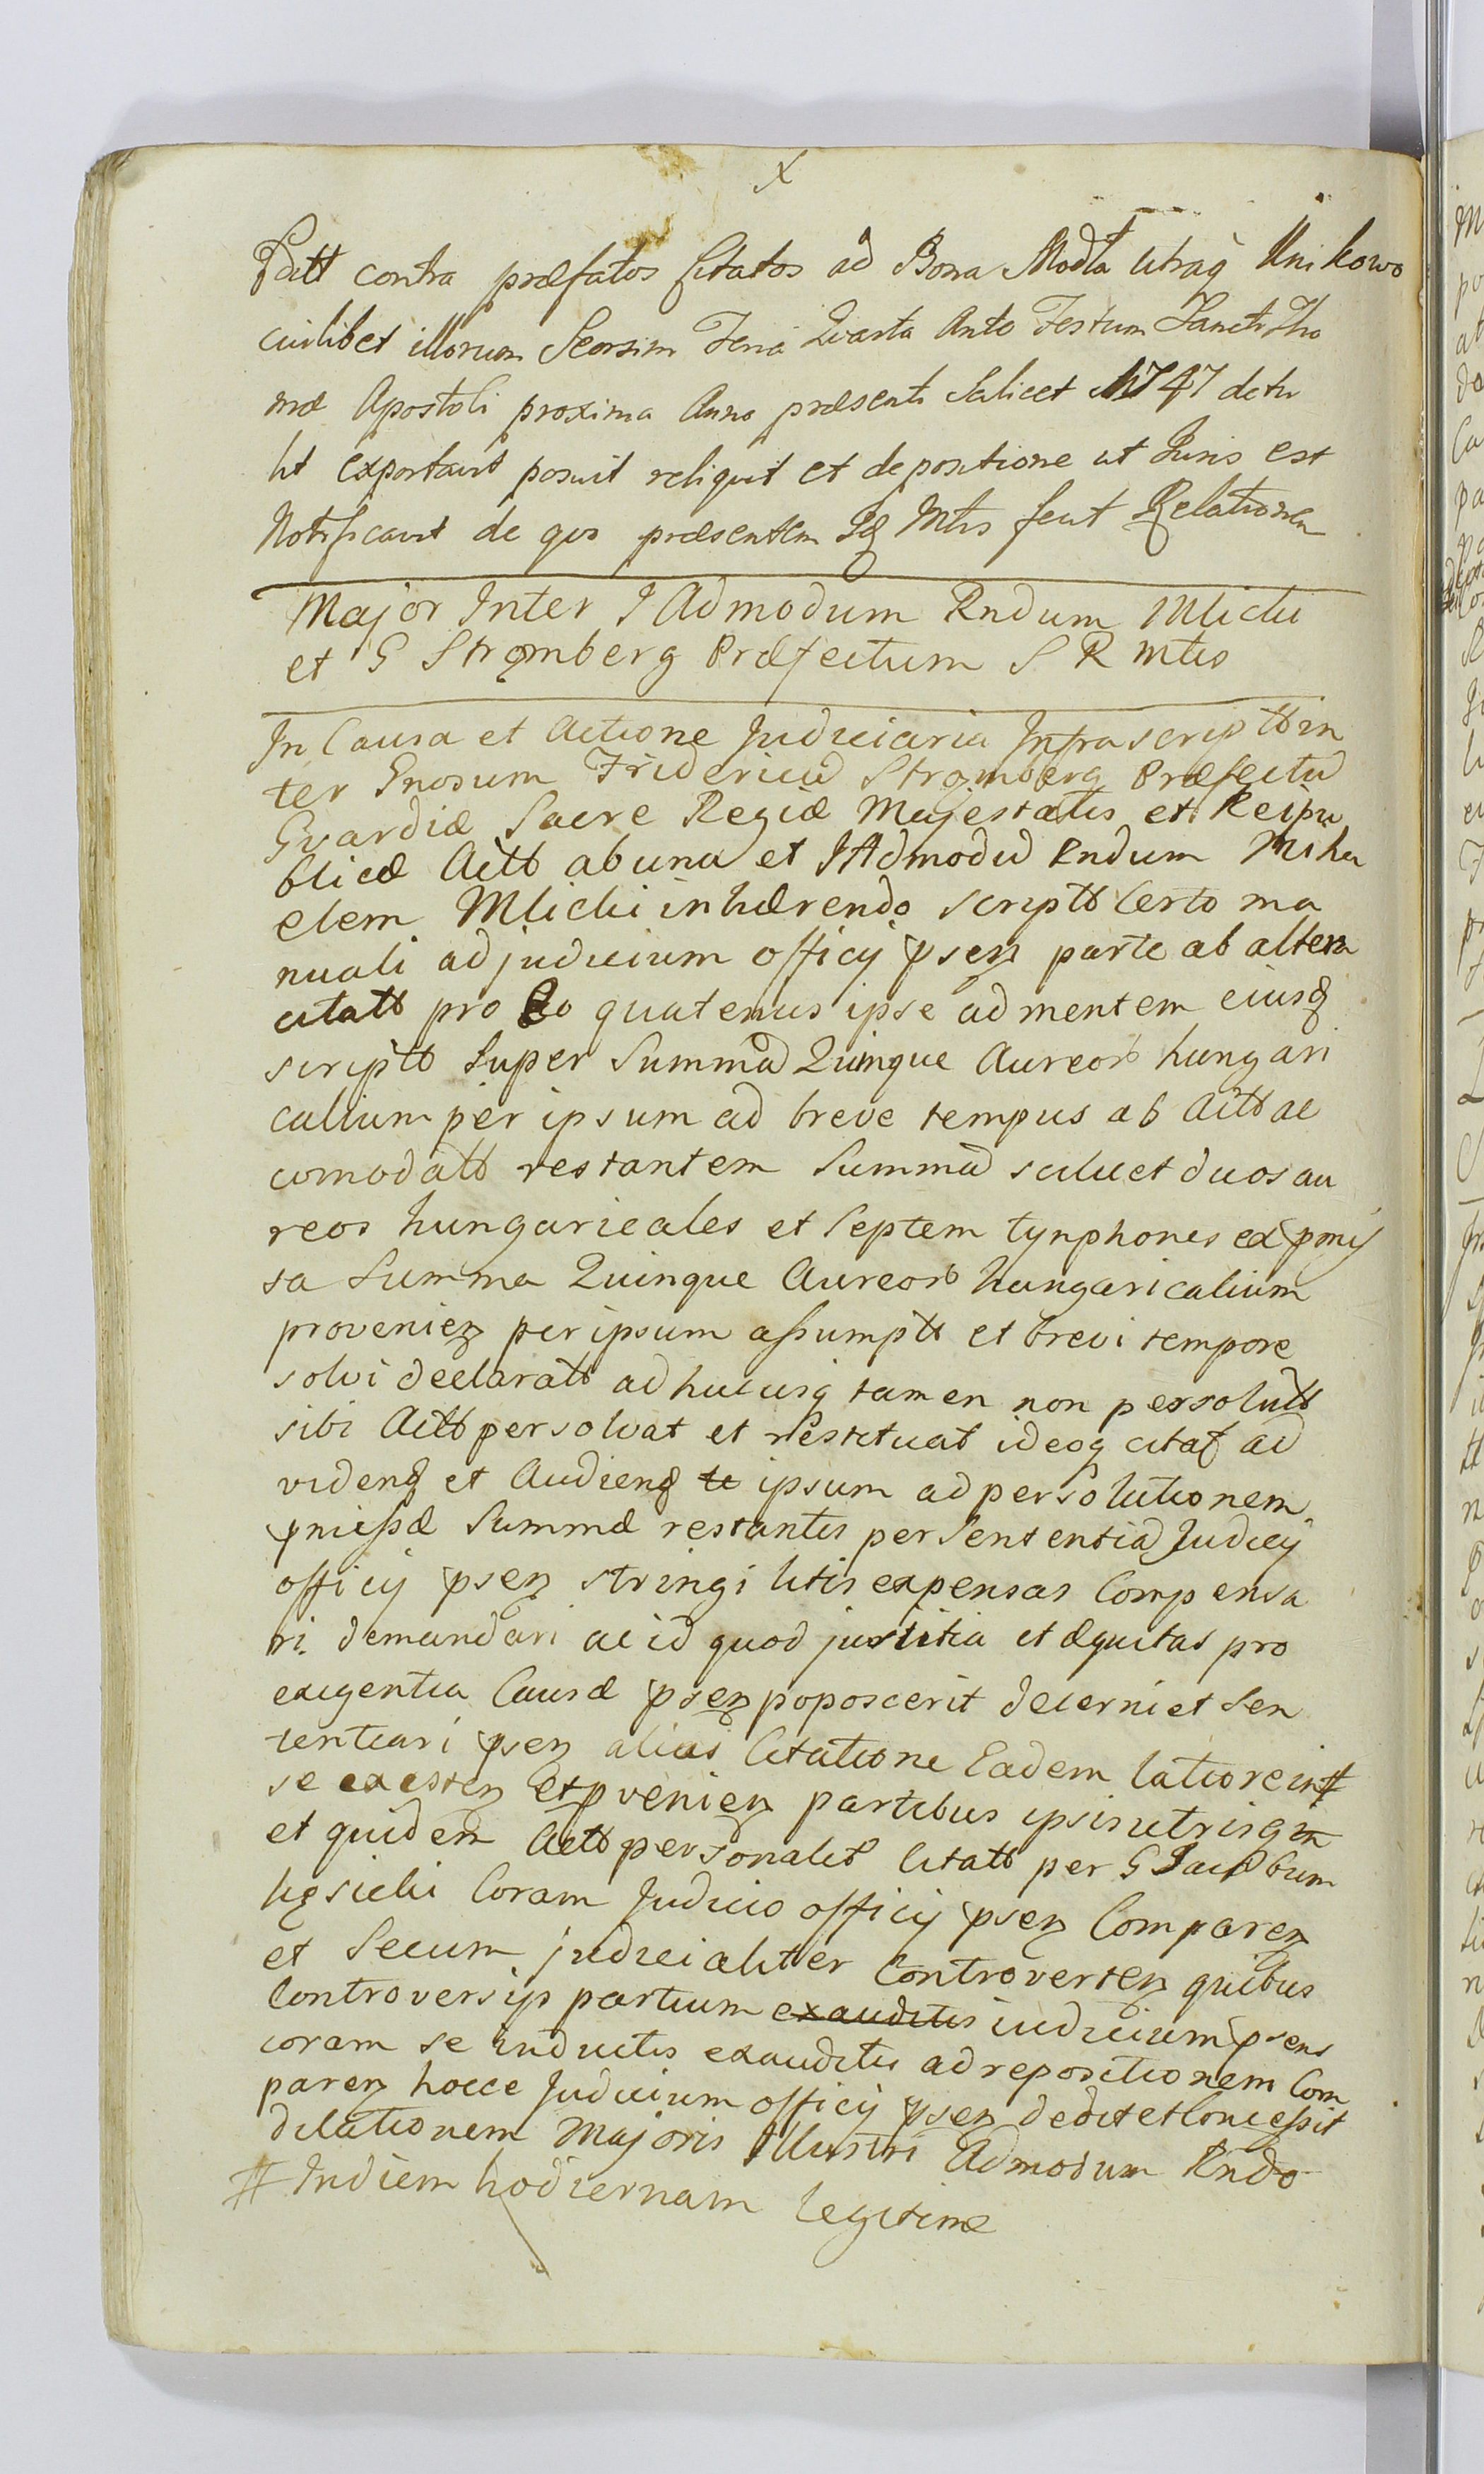 X
Patt contra præfatos Citatos ad Bona Modła utraq Unikowo
cuilibet illorum Seorsim Feria Quarta Ante Festum Sancti Tho
mæ Apostoli proxima Anno præsenti Scilicet 1747 detu
lit exportavit posuit reliquit et depositione ut Juris est
Notificavit de quo præsentem Mtis fecit Relationem
Major Inter I Admodum Rndum Mlicki
et G Strømberg Præfectum S R Mtis
In Causa et Actione Judiciaria Infrascriptt in
ter Gnosum Fridericum Strømberg Præfectu
Gvardiæ Sacre Regiæ Majestatis et Reipu
blicæ Actt ab una et I Admodu Rndum Micha
elem Mlicki inhærendo scriptt Certo ma
nuali ad judicium officij psen parte ab altera
citatt pro Eo quatenus ipse ad mentem eiusd
scriptt Super Summa Quinque Aureor hungari
calium per ipsum ad breve tempus ab Actt ac
comodatt restantem Summa scilicet duos au
reos hungaricales et Septem tynphones ex pmis
sa Summa Quinque Aureor hungaricalium
provenien per ipsum assumptt et brevi tempore
solvi declaratt ad hucusq tamen non persolutt
sibi Actt persolvat et restituat ideoq citat ad
vidend et Audiend te ipsum ad persolutionem
pmissæ Summæ restantis per Sententia Judicij
officij psen stringi litis expensas Compensa
ri demandari ac id quod justitia et æquitas pro
exigentia Causæ psen poposcerit decerni et Sen
tentiari psen alias Citatione Eadem latiore in #
se existen et pvenien partibus ipsis utrisq
et quidem Actt personalit Citatt per G Jacobum
Coram Judicio officij psen Comparen
et Secum judicialiter Controverten quibus
Controversijs partium exauditis iudicium psens
coram se inductis exauditis ad repositionem Com
paren hocce Judicium officij psen dedit et Concessit
dilationem Majoris Illustri Admodum Rndo
# In diem hodiernam legitime